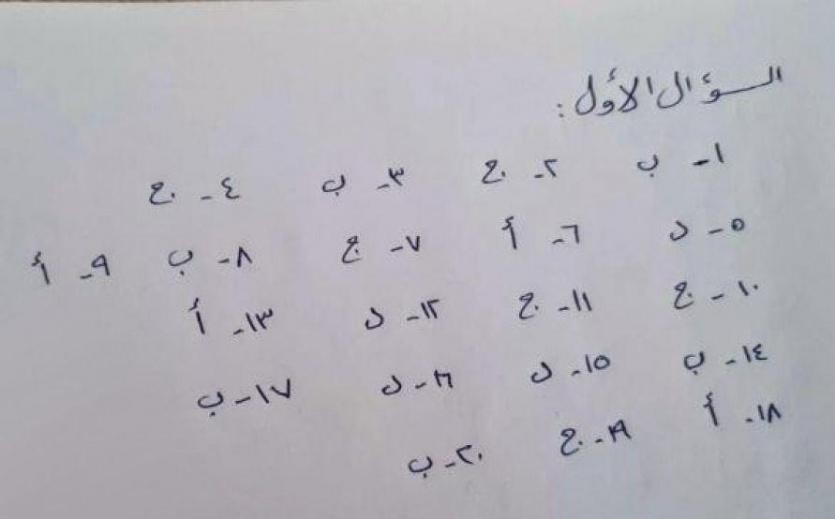 السؤال الأول:
١- ب ٢- ج ٣- ب ٤- ج
٥- د ٦- أ ٧- ج ٨- ب ٩- أ
١٠- ج ١١- ج ١٢- د ١٣- أ
١٤- ب ١٥- د ١٦- د ١٧- ب
١٨- أ ١٩- ج ٢٠- ب